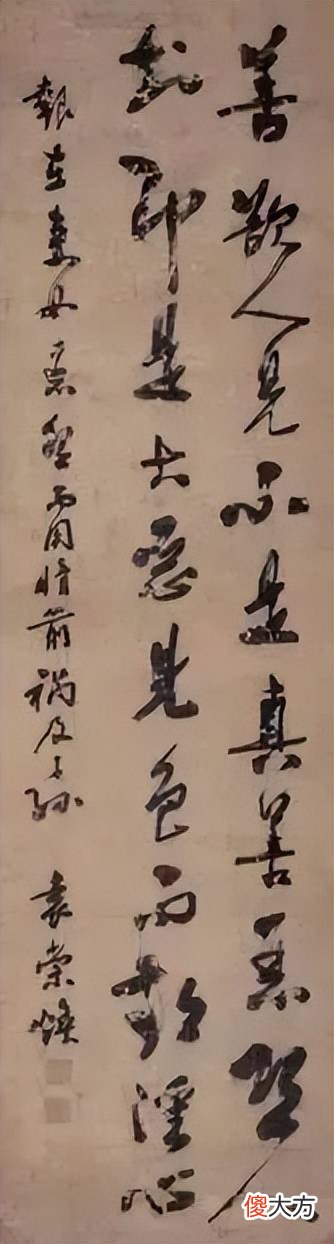 善欲人見不是真善惡恐人
知即是大惡見色而起淫心
報在妻女匿怨而用暗箭禍及子孫 袁崇煥
傻大方